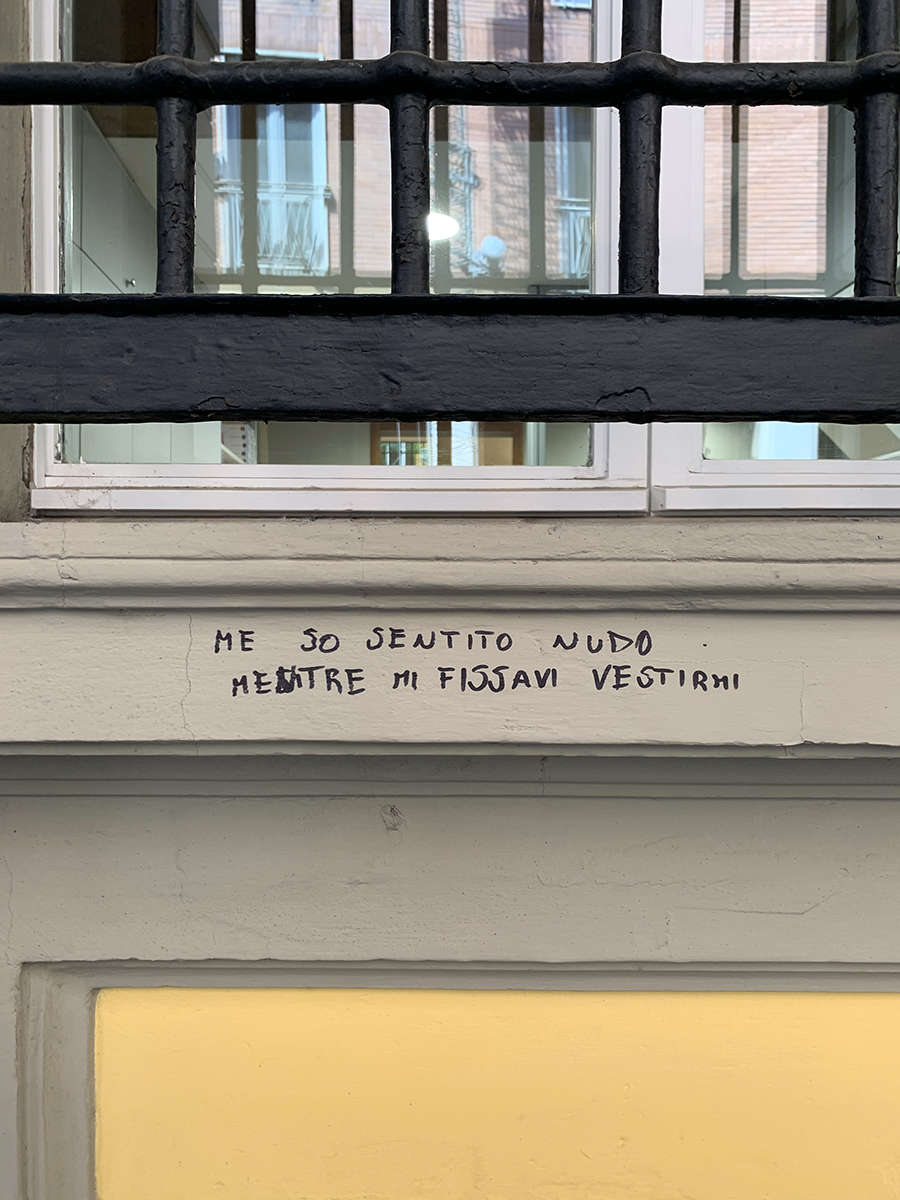 ME SO SENTITO NUDO
MENTRE MI FISSAVI VESTIRMI